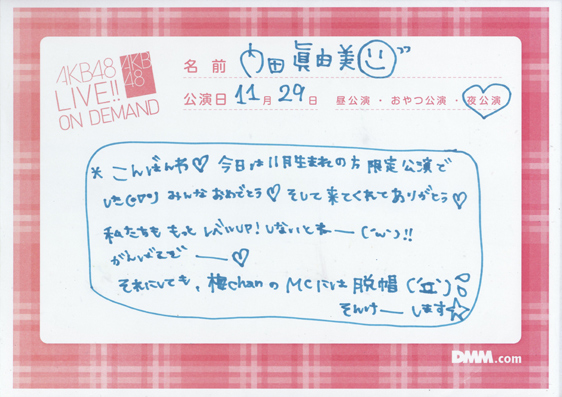 AKB48
LIVE!!
ON DEMAND
AKB
48
名前 内田眞由美
公演日 11月29日 昼公演・おやつ公演・夜公演
* こんばんわ♡ 今日は11月生まれの方 限定公演で
した(○▽○)ノ みんなおめでとう♡ そして来てくれてありがとう♡
私たちも もっと レベルUP! しないとねー (´ω`)!!
がんばるぞー♡
それにしても、梅chanのMCには脱帽(´Д`)
そんけーします☆
DMM.com